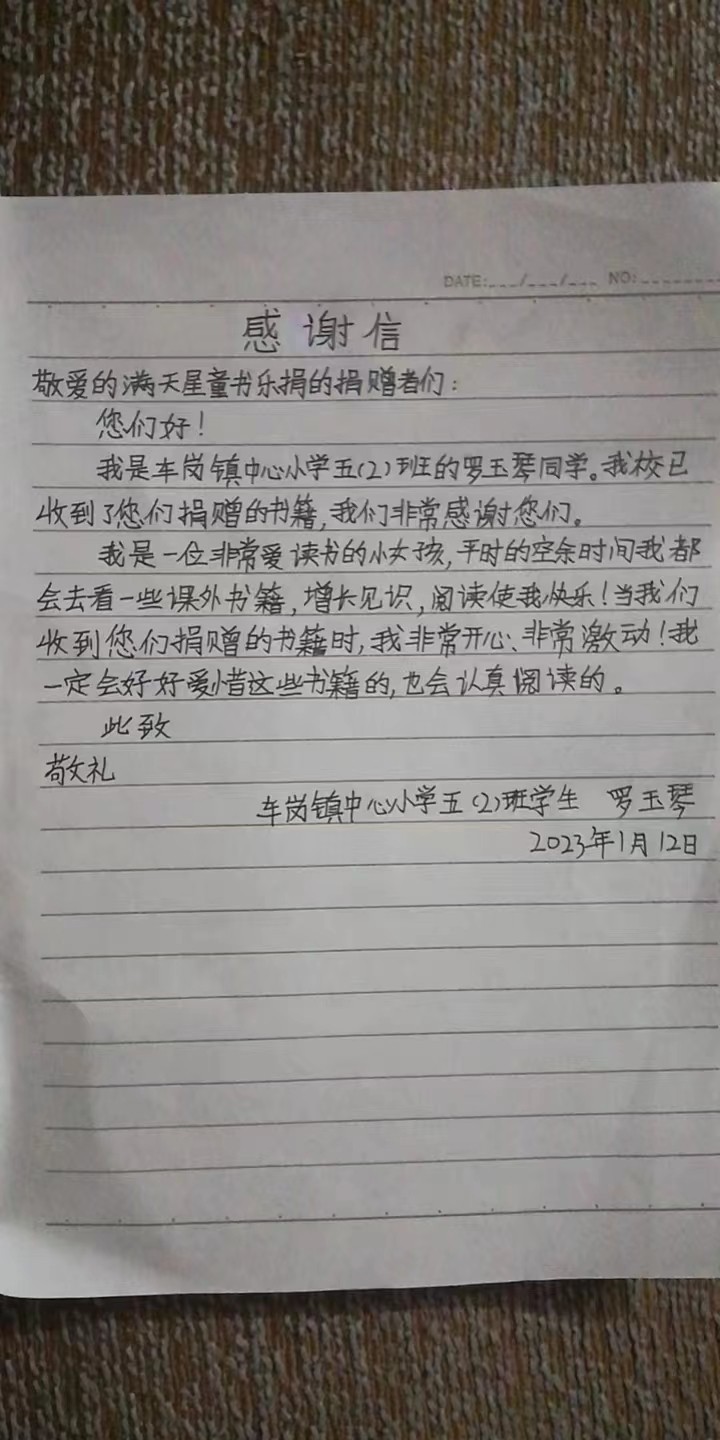 DATE:___/___/___ NO:_______
感谢信
敬爱的满天星童书乐捐的捐赠者们:
您们好!
我是车岗镇中心小学五(2)班的罗玉琴同学。我校已
收到了您们捐赠的书籍,我们非常感谢您们。
我是一位非常爱读书的小女孩,平时的空余时间我都
会去看一些课外书籍,增长见识,阅读使我快乐!当我们
收到您们捐赠的书籍时,我非常开心、非常激动!我
一定会好好爱惜这些书籍的,也会认真阅读的。
此致
敬礼
车岗镇中心小学五(2)班学生 罗玉琴
2023年1月12日